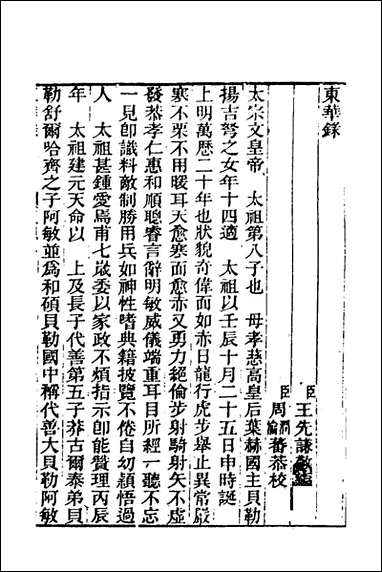 東華錄
臣王先謙敬編
臣周潤蕃恭校
太宗文皇帝　太祖第八子也　母孝慈高皇后葉赫國主貝勒
揚吉砮之女年十四適　太祖以壬辰十月二十五日申時誕
上明萬歷二十年也狀貌奇偉面如赤日龍行虎步舉止異常嚴
寒不栗不用暖耳天愈寒而愈赤又勇力絕倫步射騎射矢不虛
發恭孝仁惠和順聰睿言辭明敏威儀端重耳目所經一聽不忘
一見卽識料敵制勝用兵如神性嗜典籍披覽不倦自幼穎悟過
人　太祖甚鍾愛焉甫七歲委以家政不煩指示卽能贊理丙辰
年　太祖建元天命以　上及長子代善第五子莽古爾泰弟貝
勒舒爾哈齊之子阿敏並爲和碩貝勒國中稱代善大貝勒阿敏